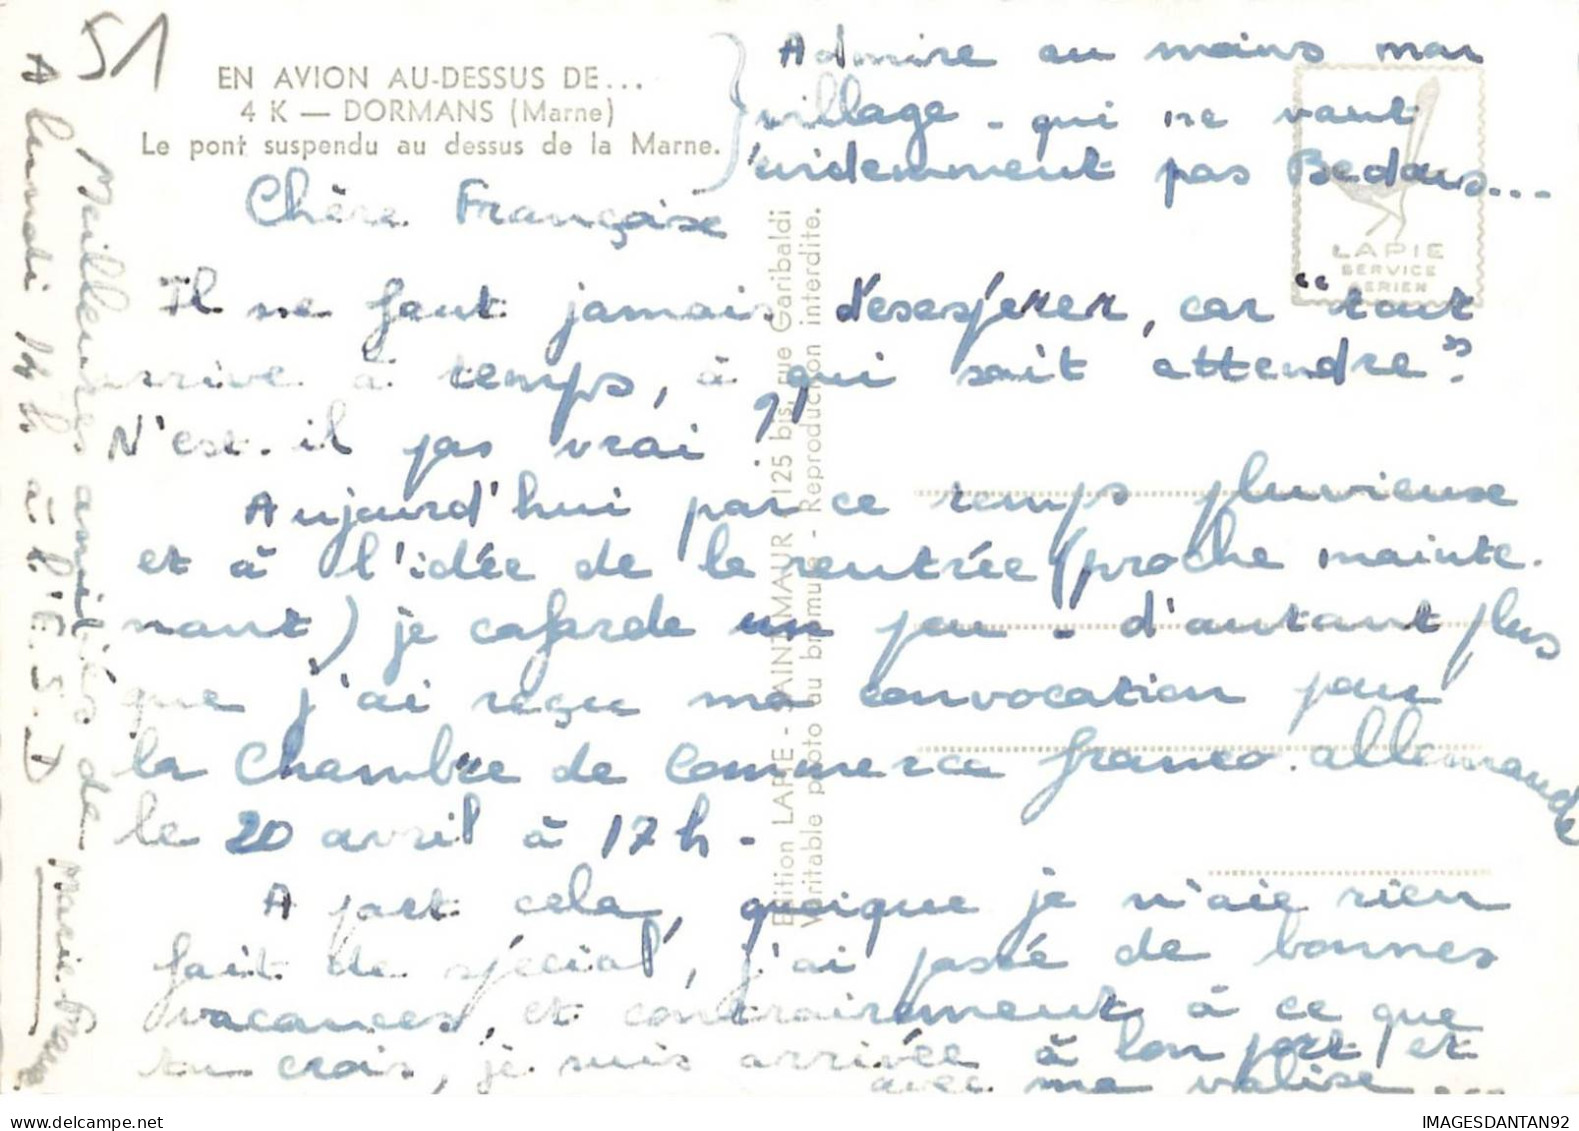 51
EN AVION AU-DESSUS DE...
4 K — DORMANS (Marne)
Le pont suspendu au dessus de la Marne.
Admire au moins mon
village - qui ne vaut
évidemment pas Bedous...
LAPIE
SERVICE
AERIEN
Chère Françoise
Il ne faut jamais désespérer, car "tout
arrive à temps, à qui sait attendre".
N'est-il pas vrai ?
Aujourd'hui par ce temps pluvieuse
et à l'idée de la rentrée (proche mainte-
nant) je cafarde un peu - d'autant plus
que j'ai reçu ma convocation pour
la Chambre de Commerce franco-allemande
le 20 avril à 17 h -
A part cela, quoique je n'aie rien
fait de spécial, j'ai passé de bonnes
vacances, et contrairement à ce que
tu crois, je suis arrivée à bon port et
avec ma valise...
Meilleures amitiés de
Marie
A lundi 14 h à l'E.S.D
Edition LAPIE - SAINT-MAUR, 125 bis, rue Garibaldi
Véritable photo au bromure - Reproduction interdite.
IMAGESDANTAN92